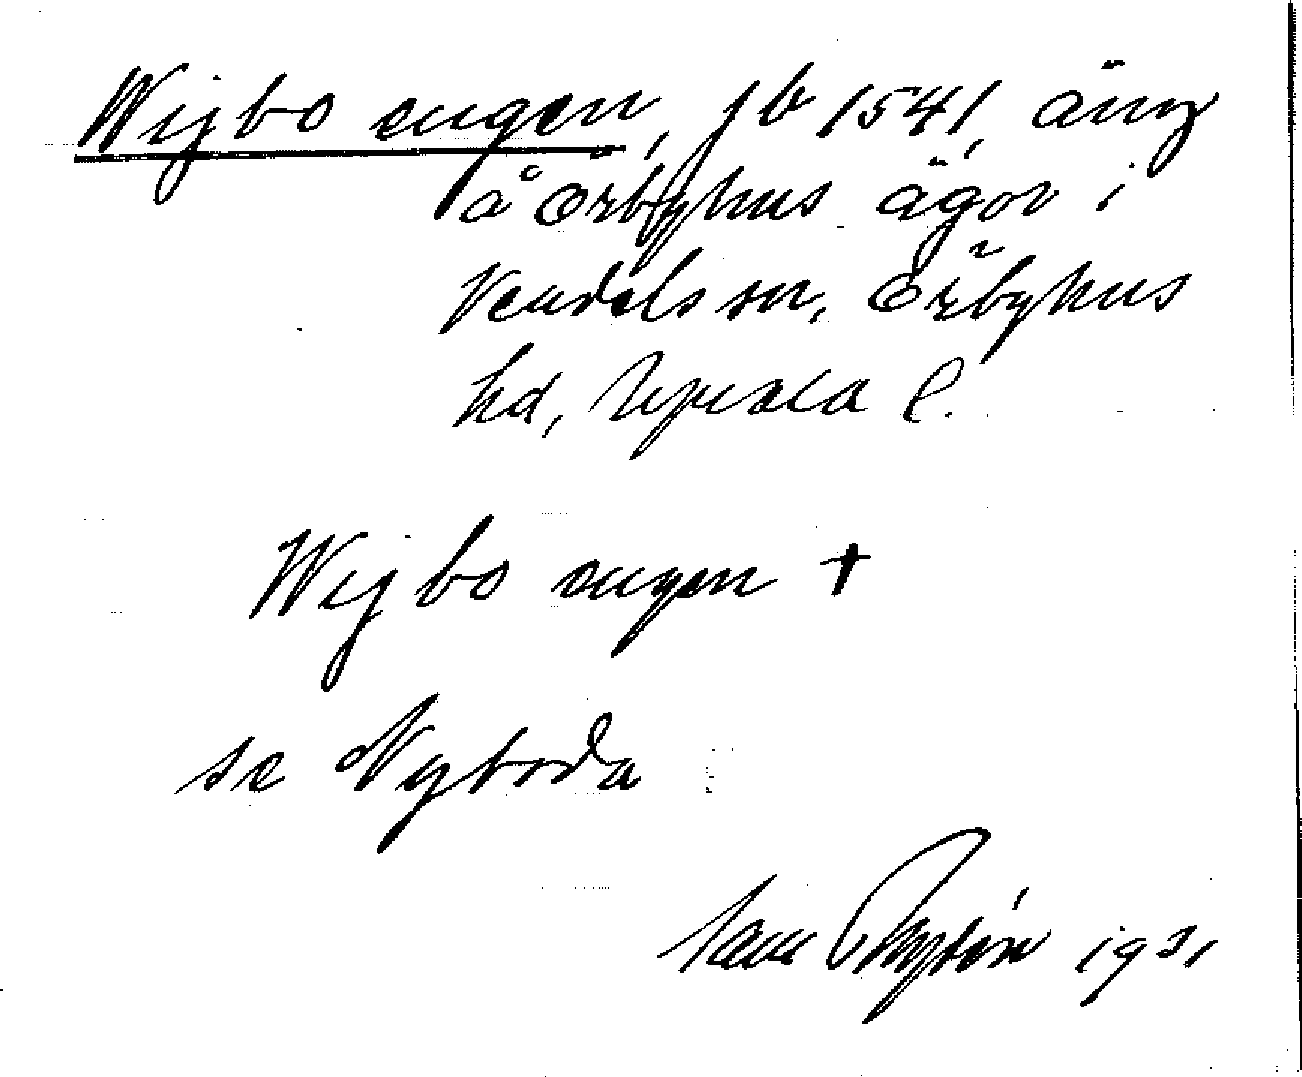 Wijbo engen, jb 1541, äng
å Örbyhus ägor i
Vendels sn, Örbyhus
hd, Upsala l.
Wijbo engen †
se Nyboda
1931